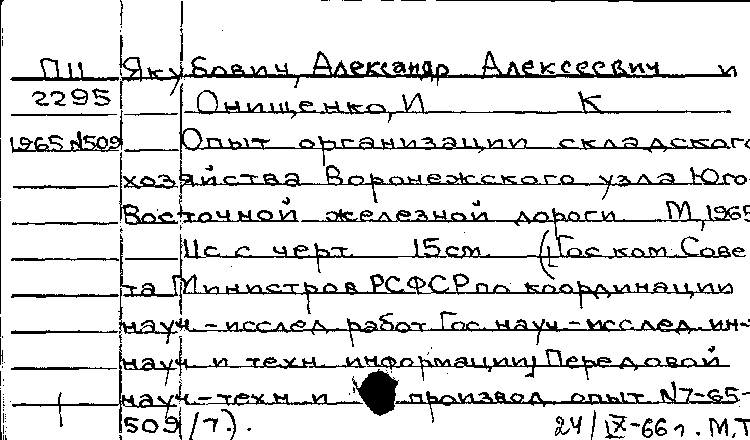 ПЦ Якубович, Александр Алексеевич и
2295 Онищенко, И К
1965 N509 Опыт организации складского
хозяйства Воронежского узла Юго-
Восточной железной дороги М, 1965
11с с черт 15см (Гос ком Сове
та Министров РСФСР по координации
науч-исслед работ Гос науч-исслед ин-т
науч и техн информации) Передовой
науч-техн и производ опыт N7-65-
509/7). 24/IX-66г. М.Т